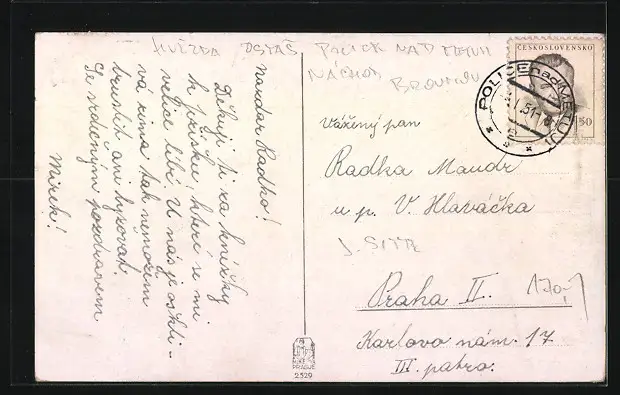 HVĚZDA OSTAŠ POLICE NAD METUJÍ
NÁCHOD BROUMOV
Nazdar Radko!
Děkuji ti za knížky
k přísku, které se mi
velice líbí. U nás je oškli-
vá zima tak nemožem
bruslit ani lyžovat.
Se srdečným pozdravem
Mirek!
ČESKOSLOVENSKO
POLICE nad METUJÍ
51-8
1 50
Vážený pan
Radka Maudr
u p. V. Hlaváčka
J. SITTE
Praha II.
170,-
Karlovo nám. 17
III. patro.
PRAGUE
2529